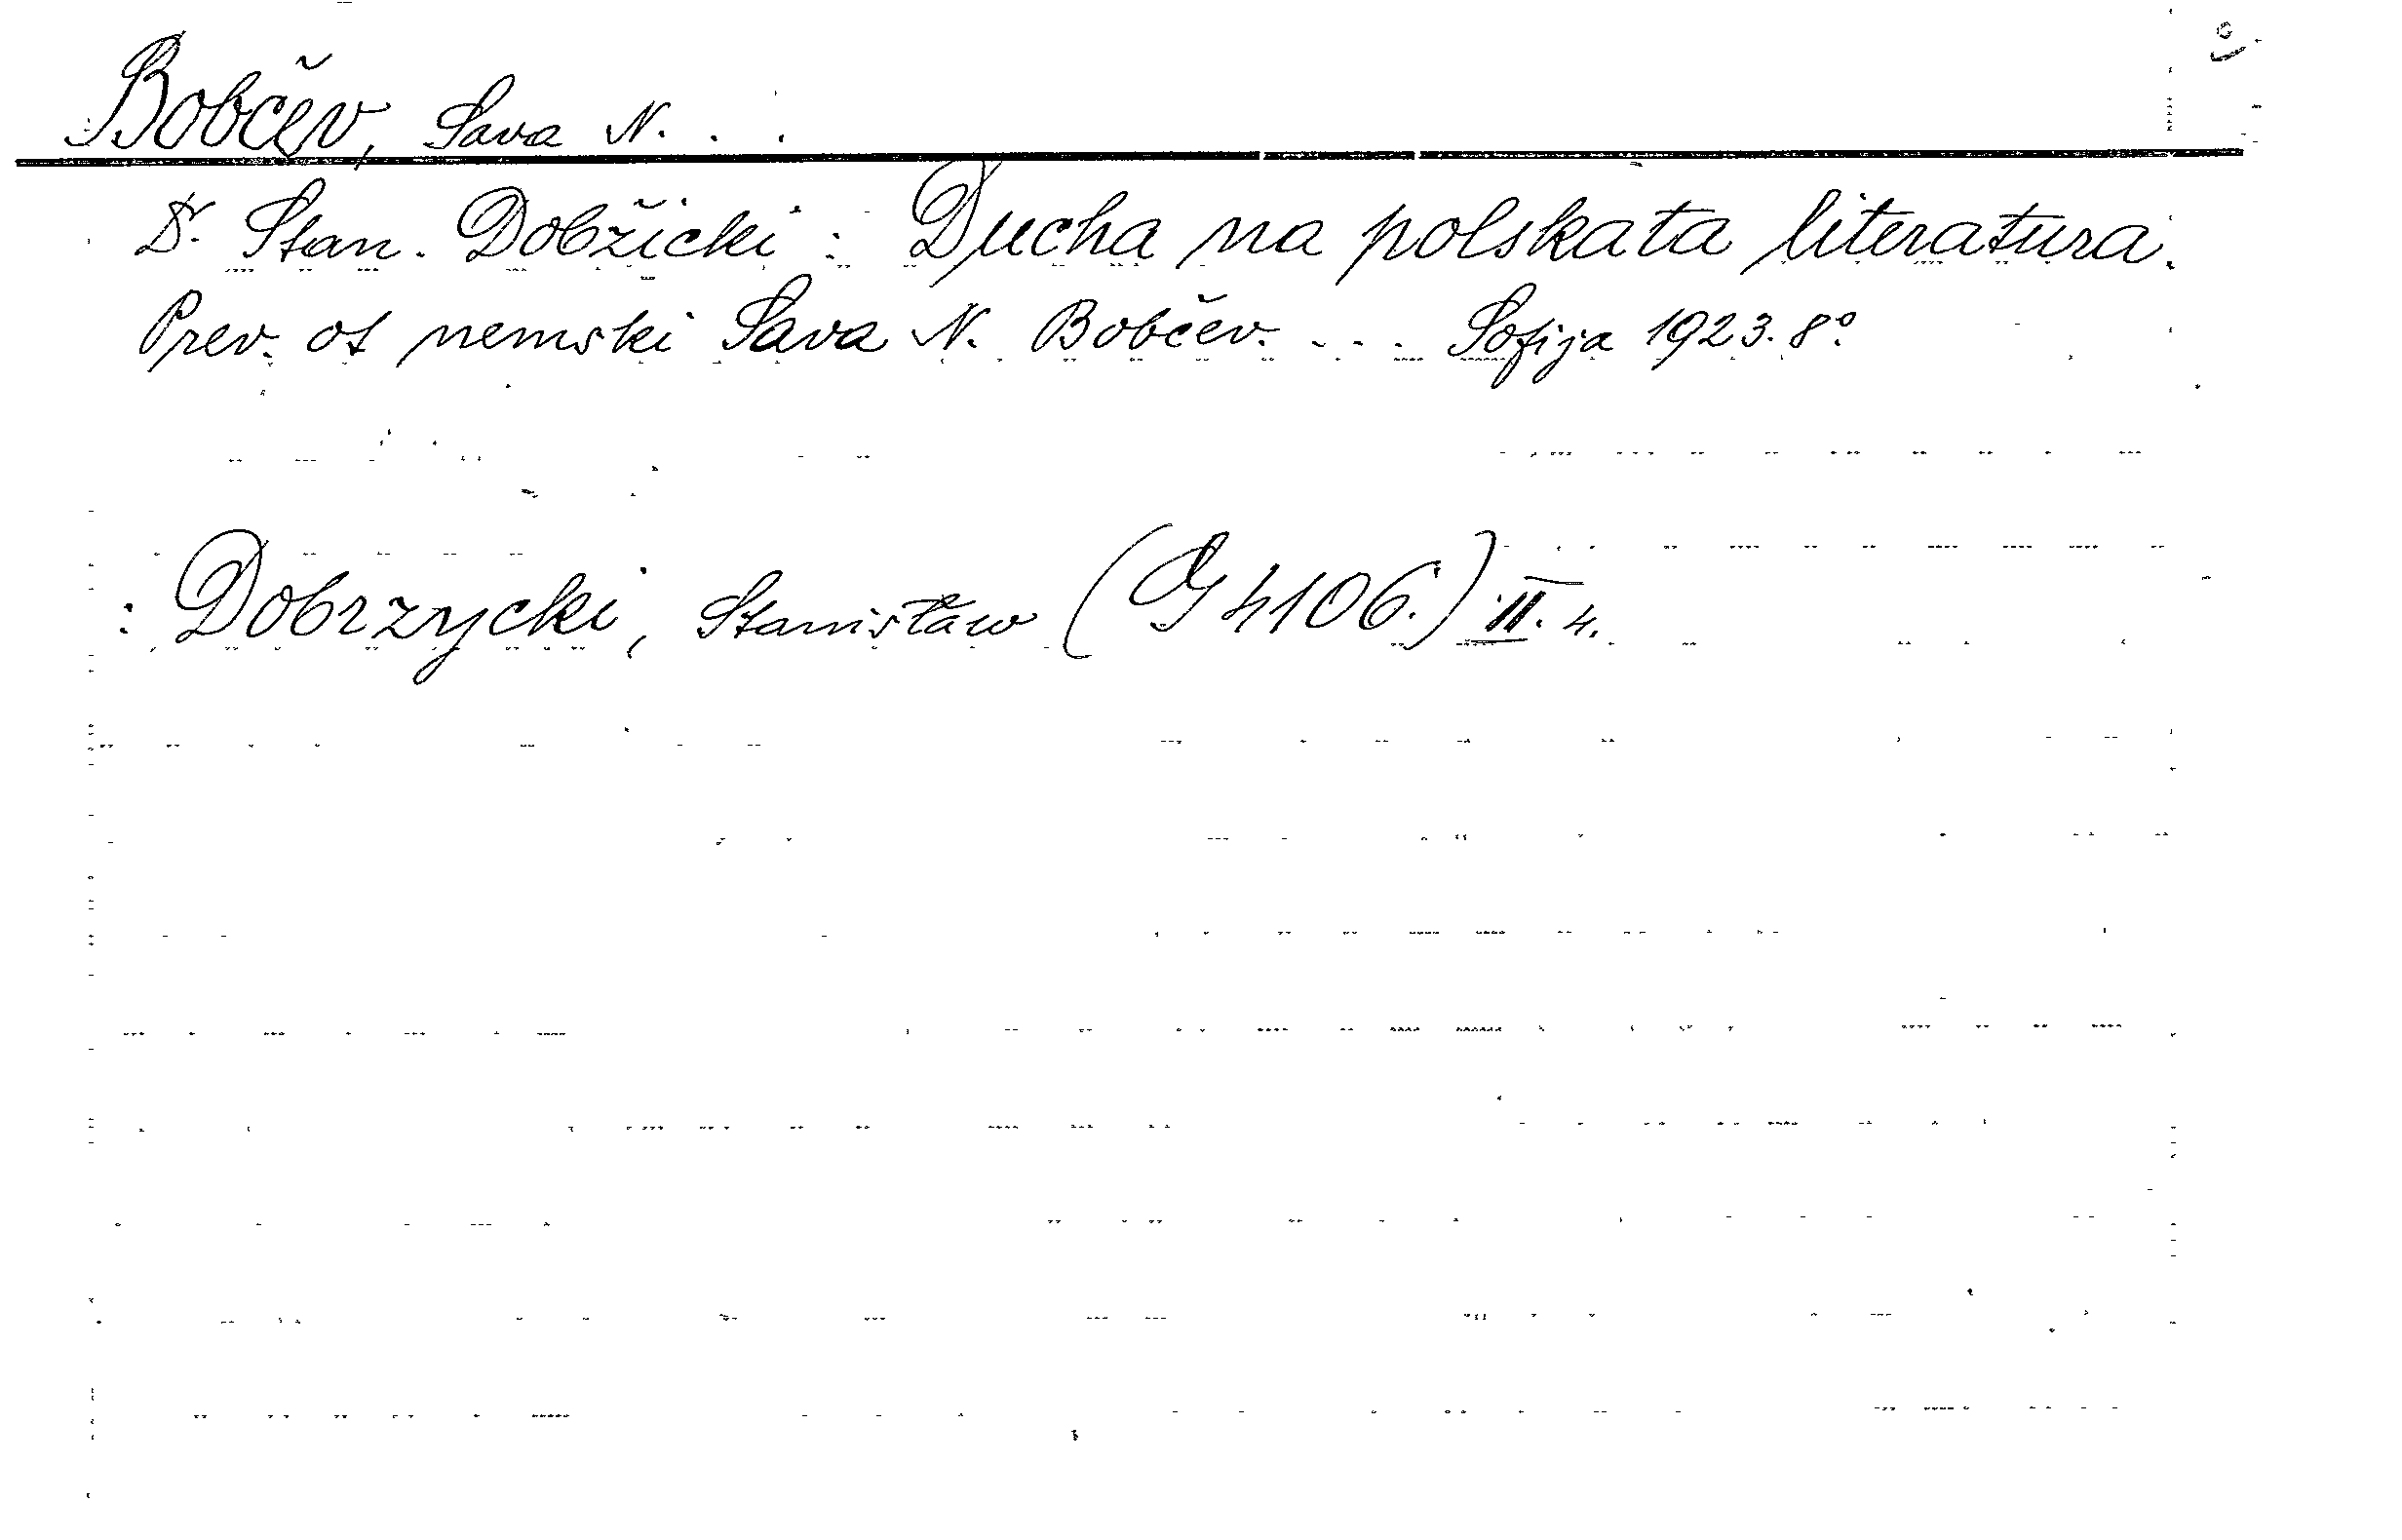 Bobčev, Sava N. . .
Dr. Stan. Dobžicki : Ducha na polskata literatura.
Prev. ot nemski Sava N. Bobčev. . . . Sofija 1923. 8°.
: Dobrzycki, Stanisław (G 4106.) II. 4.